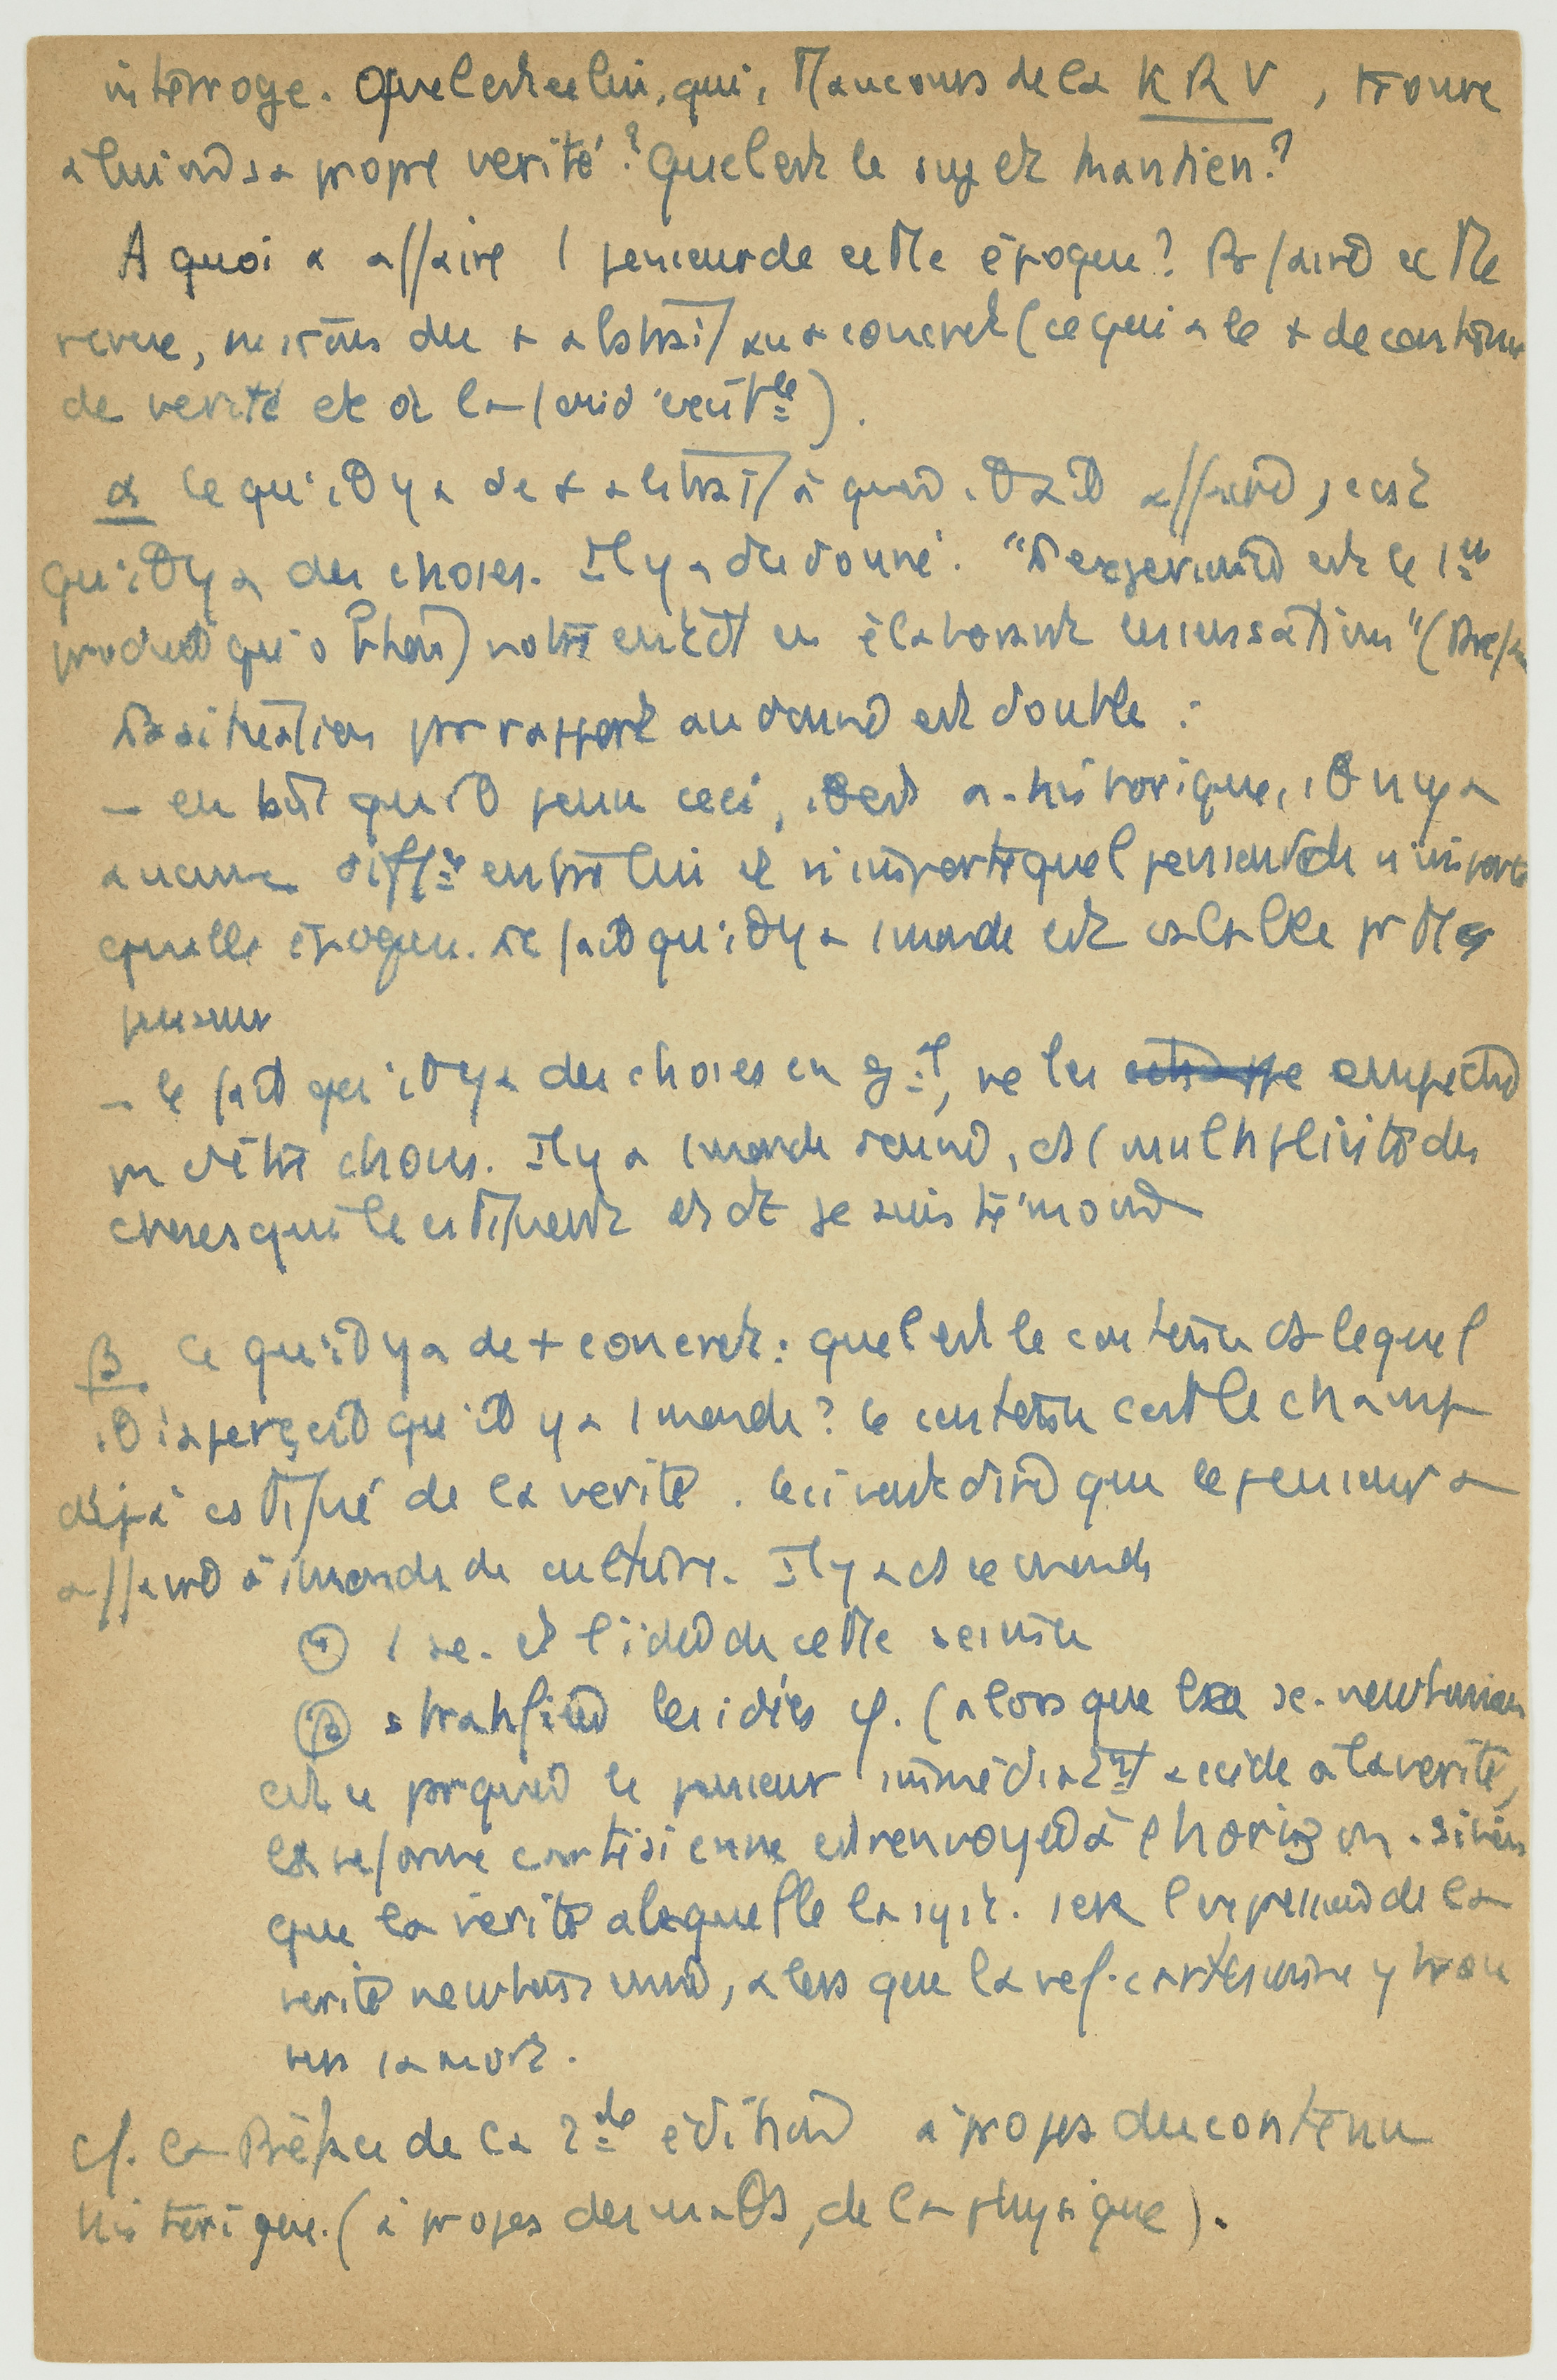 interroge. Quel est celui, qui, au cours de la KRV, trouve
à lui sa propre verité? Quel est le sujet kantien?
A quoi a affaire 1 penseur de cette époque? Pr faire cette
revue, ns irons du + abstrait au + concret (ce qui a le + de contenu
de verité et
α Ce qu'il y a de + abstrait à quoi il ait affaire, c'est
qu'il y a des choses. Il y a du donné. "L'experience est le 1er
produit qu'obtient notre entdt en élaborant les sensations" (Préf
La situation par rapport au donné est double :
– en tant qu'il pense ceci, il est a-historique, il n'y a
aucune diffce entre lui et n'importe quel penseur de n'importe
quelle époque. Le fait qu'il y a 1 monde est valable pr tt
penseur
– le fait qu'il y a des choses en gal, ne les empeche
pas d'être choses. Il y a 1 monde donné, ds 1 multiplicité des
choses qui le constituent et dt je suis témoin
β. Ce qu'il y a de + concret : quel est le contenu ds lequel
il s'aperçoit qu'il y a 1 monde? Le contenu c'est le champ
déjà constitué de la verité. Ceci veut dire que le penseur a
affaire à 1 monde de culture. Il y a ds ce monde
α 1 sc. et l'idée de cette science
β stratifiée les idées φ. (alors que la sc. newtonienne
est ce par quoi le penseur immédiatt accède à la verité,
la reforme cartésienne est renvoyée à l'horizon. Si bien
que la verité à laquelle la est l'expression de la
verité newtonienne, alors que la ref. cartesienne y trou
vera sa mort.
cf. la Préface de la 2de édition à propos du contenu
historique. (à propos des maths, de la physique).